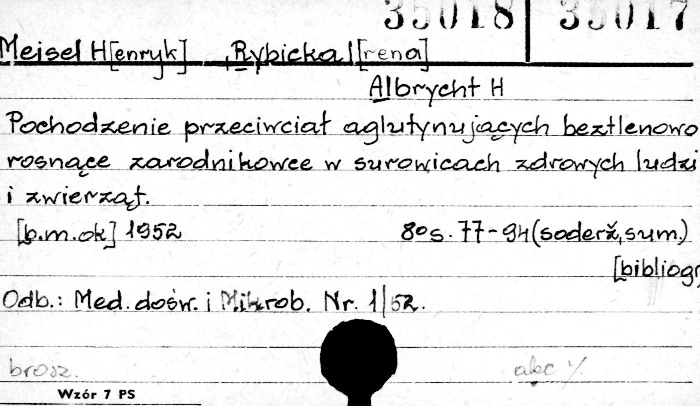 35018 35017
Meisel H[enryk] , Rybicka I[rena]
Albrycht H
Pochodzenie przeciwciał aglutynujących beztlenowo
rosnące zarodnikowce w surowicach zdrowych ludzi
i zwierząt.
[b.m.ok] 1952 80 s. 77-94 (soderž, sum.)
[bibliogr
Odb.: Med. dośw. i Mikrob. Nr. 1/52.
brosz.
Wzór 7 PS